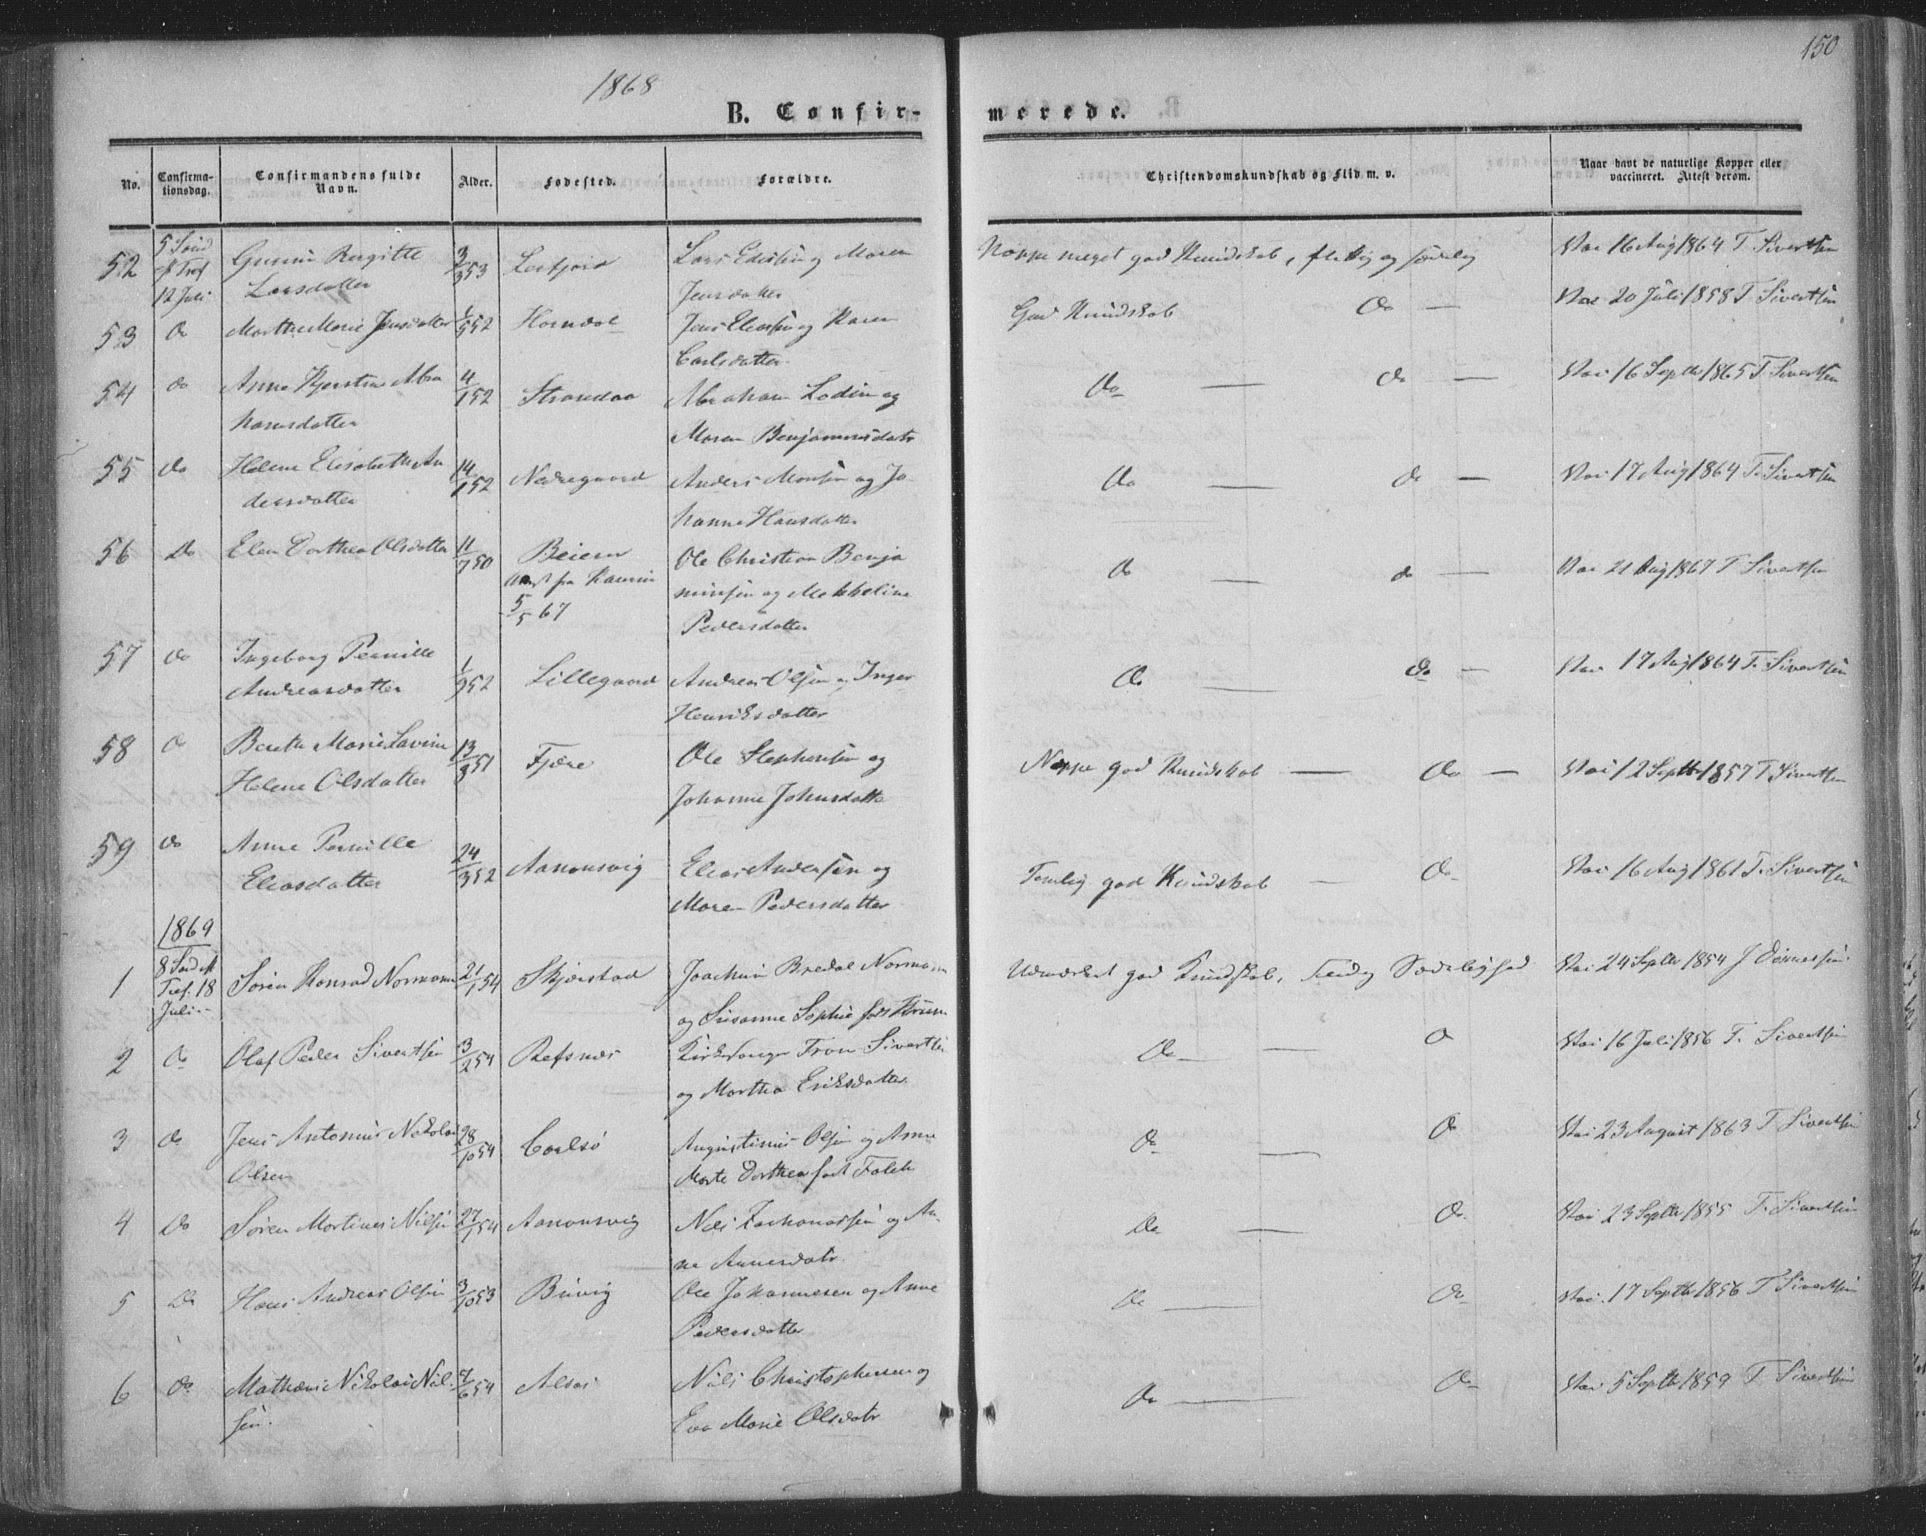 150
1868
B. Confir-
merede.
No.
Confirma-
tionsdag.
Confirmandens fulde
Navn.
Alder.
Fødested.
Forældre.
Christendomskundskab og Flid m. v.
Naar havt de naturlige Kopper eller
vaccineret. Attest derom.
52
5 Sönd
ef Tref
12 Juli
Birgitte
Larsdatter
3/3 53
Leifjord
Lars og Maren
Jensdatter
Noppe meget god Kundskab, flittig og sædelig
Vac 16 Aug 1864 T. Sivertsen
53
Do
Marthe Marie Jensdatter
1/5 52
Horndal
Jens Eliassen og Karen
Carlsdatter
God Kundskab Do —
Vac 20 Juli 1858 T. Sivertsen
54
do
Anne Kjerstine Abra
hamsdatter
4/1 52
Strandaa
Abraham Lodin og
Maren Benjaminsdatr
Do — do —
Vac 16 Septb 1865 T. Sivertsen
55
do
Helene Elisabeth An
dersdatter
14/1 52
Nedregaard
Anders Monsen og Jo
hanne Hansdatter
Do — do —
Vac 17 Aug 1864 T. Sivertsen
56
Do
Elen Dorthea Olsdatter
11/7 50
Beiern
5/5 67
Ole Christian Benja
minsen og
Pedersdatter
do — do —
Vac 21 Aug 1867 T Sivertsen
57
do
Ingeborg Pernille
Andreasdatter
1/9 52
Lillegaard
Andreas Olsen og Inger
Henriksdatter
Do — do —
Vac 17 Aug 1864 T. Sivertsen
58
Do
Berith Marie Lavine
Helene Olsdatter
13/8 51
Fjære
Ole Stephensen og
Johanne Johnsdatter
Noppe god Kundskab — Do —
Vac 12 Septb 1857 T Sivertsen
59
do
Anne Pernille
Eliasdatter
24/3 52
Aanonsvig
Elias Andersen og
Maren Pedersdatter
Temlig god Kundskab — Do
Vac 16 Aug 1861 T. Sivertsen
1869
1
8 Sönd
Tref. 18
Juli
Sören Konrad Normann
21/1 54
Skjerstad
Joachim Bredal Normann
og Susanne Sophie født
Udmærket god Kundskab, Sædelighed
Vac 24 Septb 1854 J
2
Do
Olaf Peder Sivertsen
3/2 54
Refsnæs
Kirkesanger Tron Sivertsen
og Martha Eriksdatter
Do — Do
Vac 16 Juli 1856 T. Sivertsen
3
Do
Jens Antonius Nikolai
Olsen
28/10 54
Carlsö
Augustinus Olsen og Anne
Marte Dorthea født Falch
Do — Do
Vac 23 August 1863 T Sivertsen
4
Do
Sören Martinus Nilsen
27/1 54
Aanonsvig
Nils Zachariassen og An
ne
Do — Do
Vac 23 Septb 1855 T. Sivertsen
5
Do
Hans Andreas Olsen
3/10 53
Buvig
Ole Johannesen og Anne
Pedersdatter
Do — Do
Vac. 17 Septb 1856 T Sivertsen
6
Do
Mathæus Nikolai Nil-
sen.
7/6 54
Alsos
Nils Christophersen og
Eva Marie Olsdatr
Do — Do
Vac 5 Septb 1859 T Sivertsen